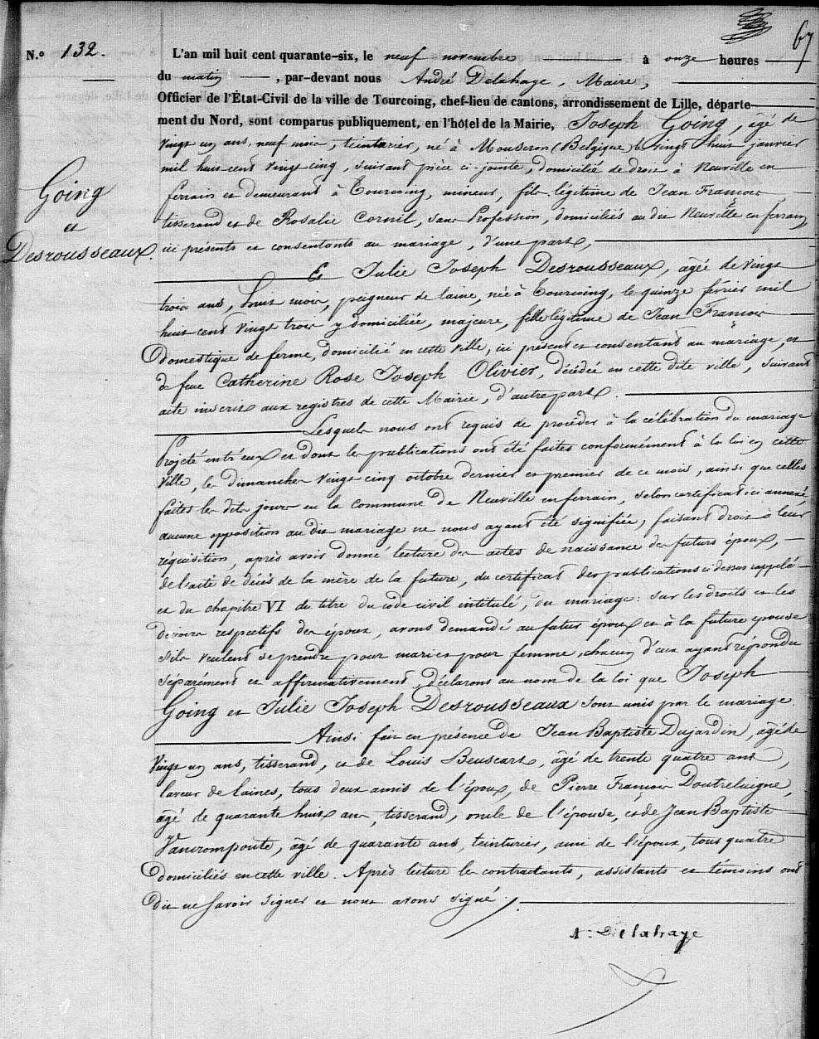 67
N.º 132.
L'an mil huit cent quarante-six, le neuf novembre à onze heures
du matin, par-devant nous André Delahaye, Maire,
Officier de l'État-Civil de la ville de Tourcoing, chef-lieu de cantons, arrondissement de Lille, départe-
ment du Nord, sont comparus publiquement, en l'hôtel de la Mairie, Joseph Going, âgé de
vingt un ans, neuf mois, teinturier, né à Mouscron (Belgique) le vingt huit janvier
mil huit cent vingt cinq, suivant pièce ci-jointe, domicilié de droit à Neuville en
ferrain et demeurant à Tourcoing, mineur, fils légitime de Jean François
tisserand et de Rosalie Cornil, sans Profession, domiciliés au dit Neuville en ferrain,
Going
et
Desrousseaux.
ici présents et consentants au mariage, d'une part,
Et Julie Joseph Desrousseaux, âgée de vingt
trois ans, huit mois, peigneur de laine, née à Tourcoing, le quinze février mil
huit cent vingt trois y domiciliée, majeure, fille légitime de Jean François
Domestique de ferme, domicilié en cette ville, ici présent et consentant au mariage, et
de feue Catherine Rose Joseph Olivier, décédée en cette dite ville, suivant
acte inscrit aux registres de cette Mairie, d'autre part.
Lesquels nous ont requis de procéder à la célébration du mariage
projeté entr'eux et dont les publications ont été faites conformément à la loi en cette
ville, les dimanches vingt cinq octobre dernier et premier de ce mois, ainsi que celles
faites les dits jours en la commune de Neuville en ferrain, selon certificat ici annexé
aucune opposition au dit mariage ne nous ayant été signifiée, faisant droit à leur
réquisition, après avoir donné lecture des actes de naissance des futurs époux,
de l'acte de décès de la mère de la future, du certificat des publications ci dessus rappelé
et du chapitre VI du titre du code civil intitulé, du mariage: sur les droits et les
devoirs respectifs des époux, avons demandé au futur époux et à la future épouse
s'ils veulent se prendre pour mari et pour femme, chacun d'eux ayant répondu
séparément et affirmativement, déclarons au nom de la loi que Joseph
Going et Julie Joseph Desrousseaux sont unis par le mariage.
Ainsi fait en présence de Jean Baptiste Dujardin, âgé de
vingt un ans, tisserand, et de Louis Beuscart, âgé de trente quatre ans,
laveur de laines, tous deux amis de l'époux, de Pierre François Doutreluigne,
âgé de quarante huit ans, tisserand, oncle de l'épouse, et de Jean Baptiste
Vancromponte, âgé de quarante ans, teinturier, ami de l'époux, tous quatre
domiciliés en cette ville. Après lecture les contractants, assistants et témoins ont
dit ne savoir signer et nous avons signé.
A: Delahaye